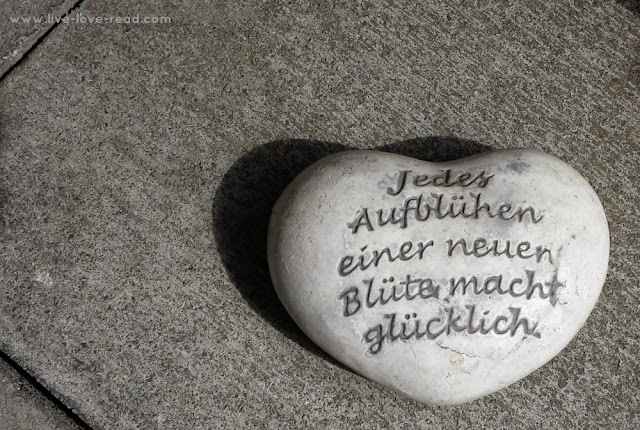 www.live-love-read.com
Jedes
Aufblühen
einer neuen
Blüte macht
glücklich.